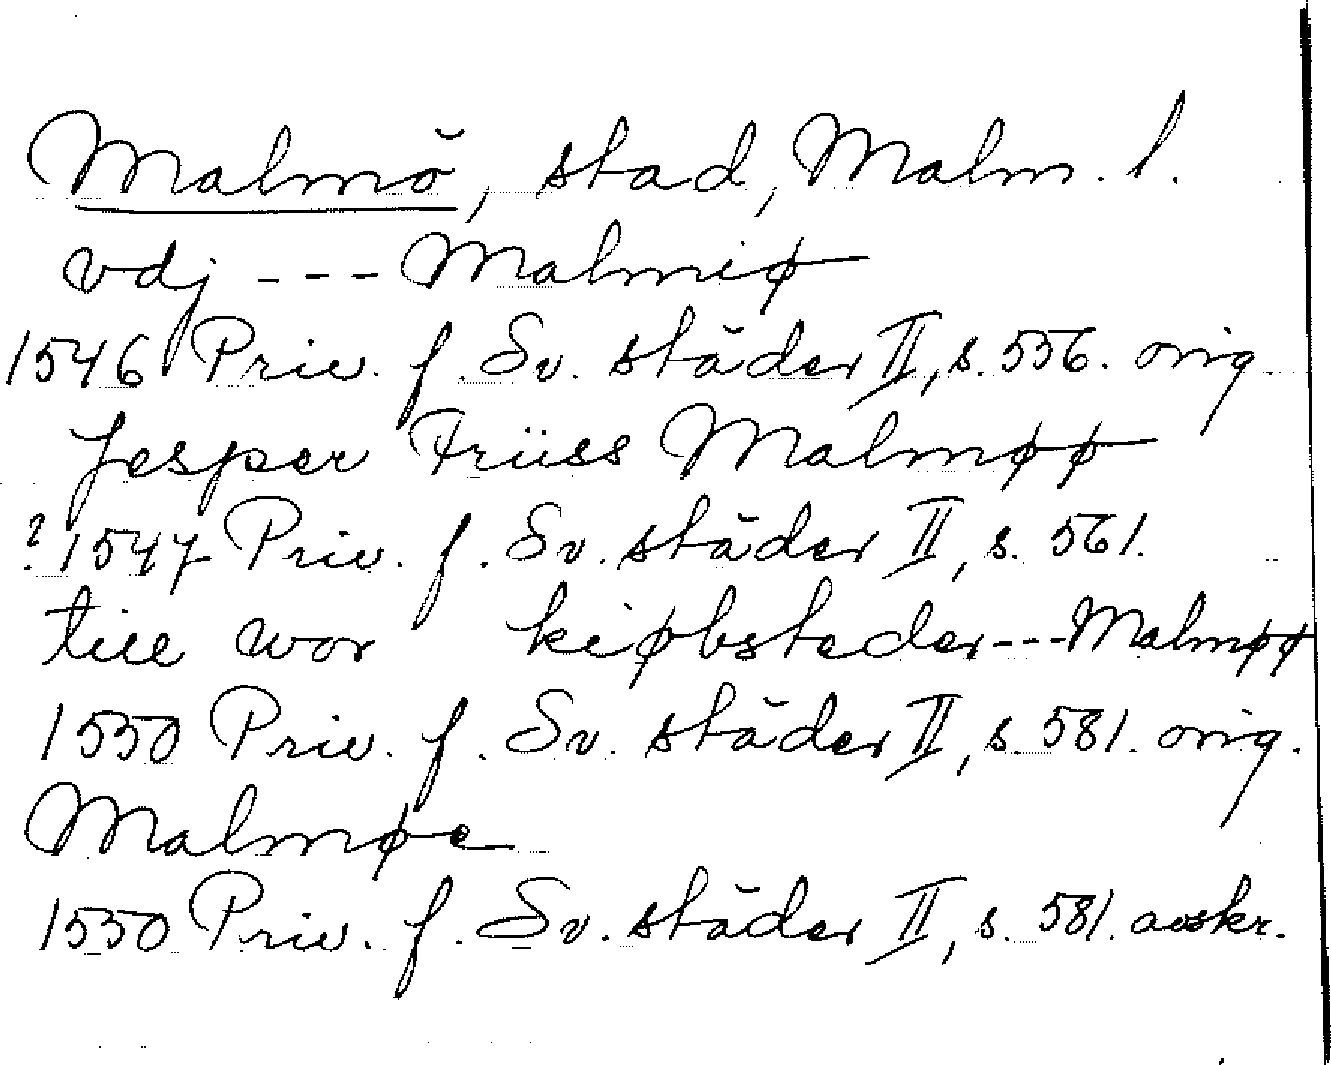 Malmö, stad, Malm. l.
vdj --- Malmiø
1546 Priv. f. Sv. städer II, s. 556. orig
Jesper Friiss Malmøø
? 1547 Priv. f. Sv. städer II, s. 561.
till wor kiøbsteder --- Malmøø
1550 Priv. f. Sv. städer II, s. 581. orig.
Malmøe
1550 Priv. f. Sv. städer II, s. 581. avskr.